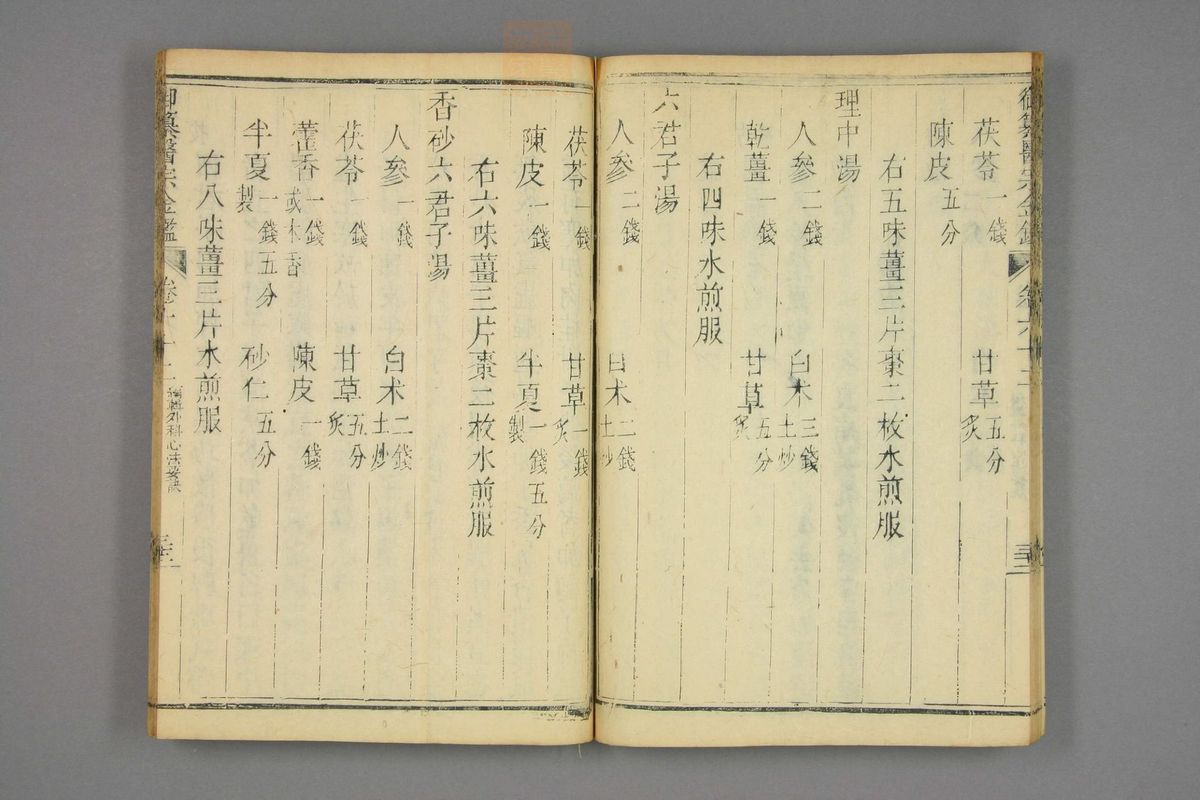 御纂醫宗金鑑 卷六十二 三三
茯苓一錢 甘草炙五分
陳皮五分
右五味薑三片棗二枚水煎服
理中湯
人參二錢 白朮土炒三錢
乾薑一錢 甘草炙五分
右四味水煎服
六君子湯
人參二錢 白朮土炒二錢
茯苓一錢 甘草炙一錢
陳皮一錢 半夏製一錢五分
右六味薑三片棗二枚水煎服
香砂六君子湯
人參一錢 白朮土炒二錢
茯苓一錢 甘草炙五分
藿香或木香一錢 陳皮一錢
半夏製一錢五分 砂仁五分
右八味薑三片水煎服
御纂醫宗金鑑 卷六十二 編輯外科心法要訣